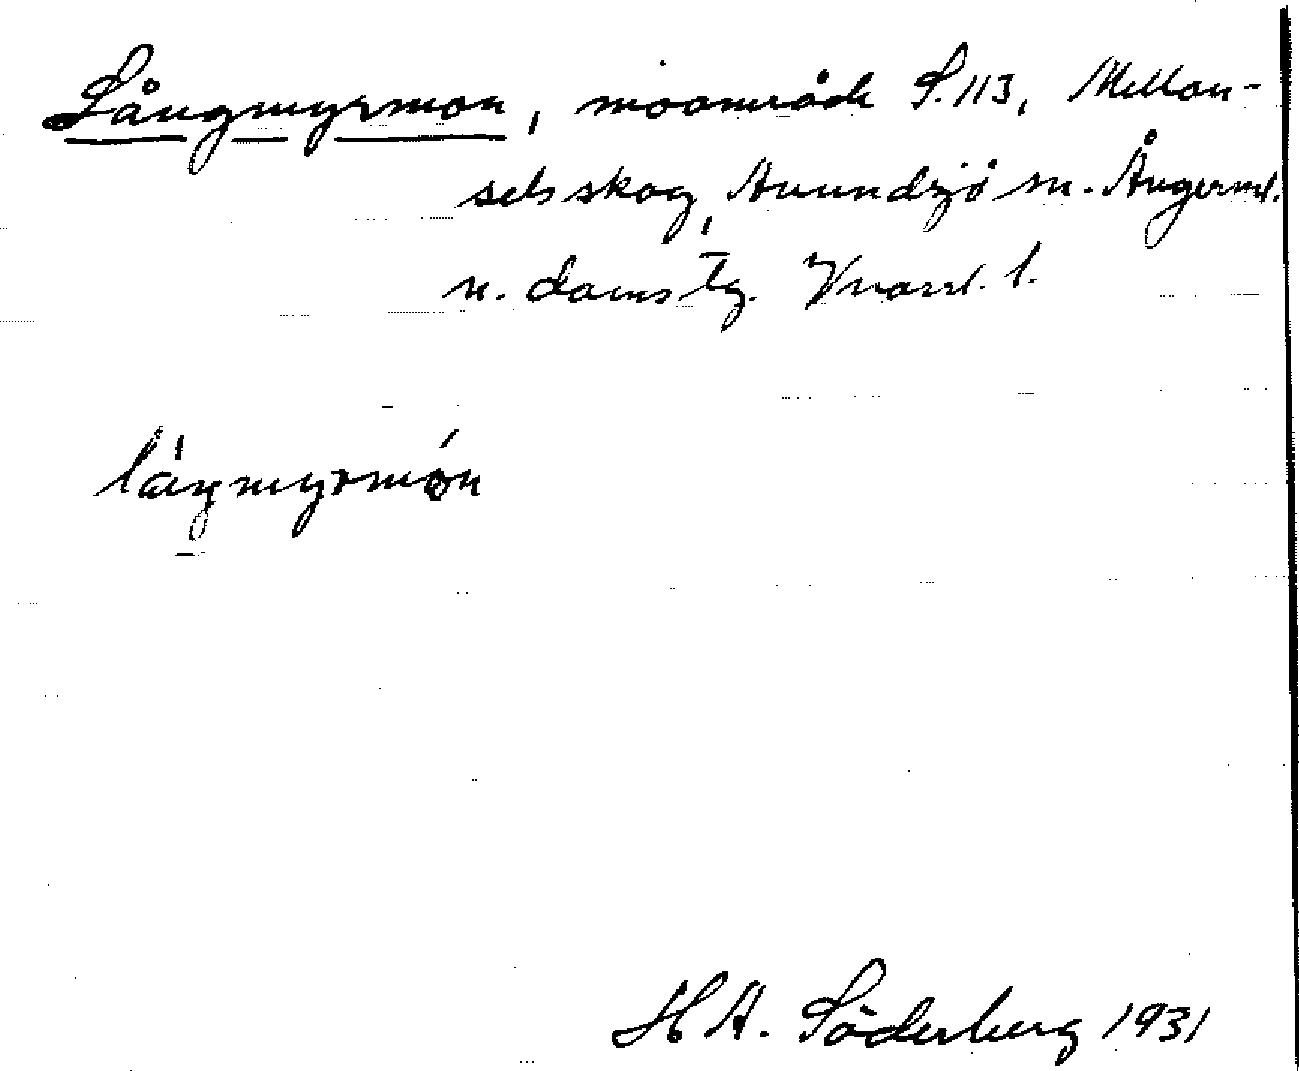 Långmyrmon, moområde S.113, Mellan-
selsskog, Anundsjö sn. Ångerml.
n. doms tg. Vnorrl. l.
långmyrmón
H A. Söderberg 1931